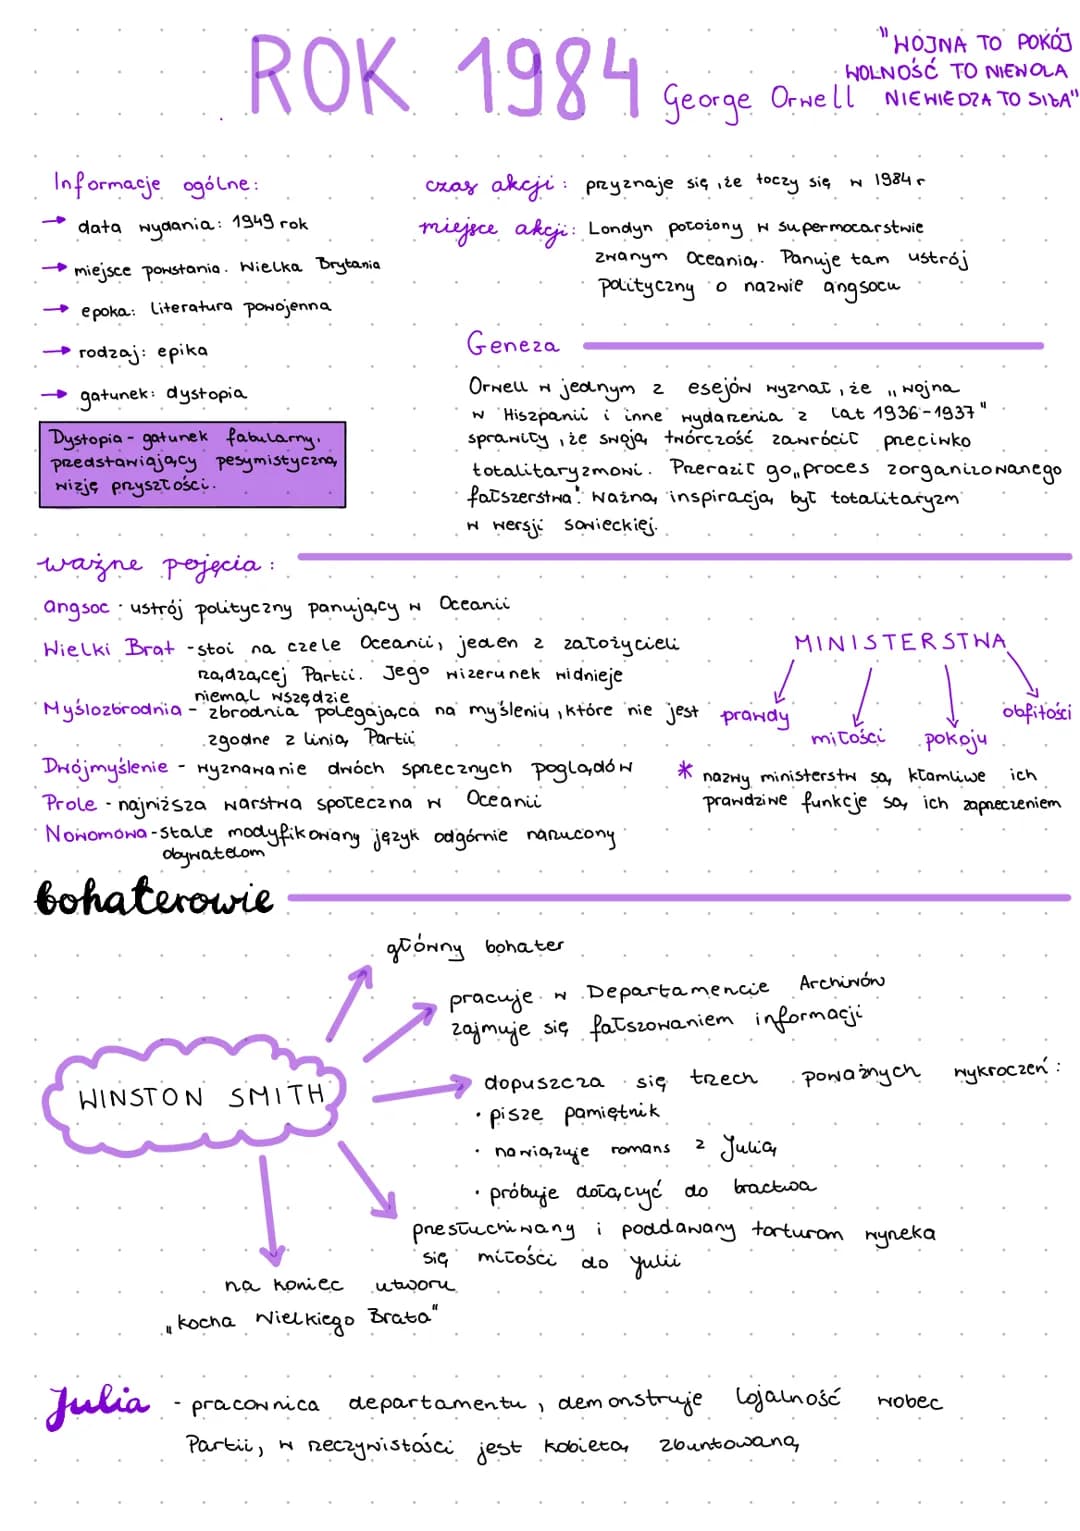 ROK 1984
George Orwell
"WOJNA TO POKÓJ
WOLNOŚĆ TO NIEWOLA
NIEWIEDZA TO SIŁA"
Informacje ogólne:
→ data wydania: 1949 rok
→ miejsce powstania. Wielka Brytania
→ epoka: literatura powojenna
→ rodzaj: epika
→ gatunek: dystopia
Dystopia - gatunek fabularny,
przedstawiający pesymistyczną
wizję przyszłości.
czas akcji: przyznaje się, że toczy się w 1984 r
miejsce akcji: Londyn położony w supermocarstwie
zwanym Oceanią. Panuje tam ustrój
polityczny o nazwie angsocu
Geneza
Orwell w jednym z esejów wyznał, że „wojna
w Hiszpanii i inne wydarzenia z lat 1936-1937"
sprawiły, że swoją twórczość zawrócił przeciwko
totalitaryzmowi. Przeraził go „proces zorganizowanego
fałszerstwa". Ważną inspiracją był totalitaryzm
w wersji sowieckiej.
ważne pojęcia:
angsoc - ustrój polityczny panujący w Oceanii
Wielki Brat - stoi na czele Oceanii, jeden z założycieli
rządzącej Partii. Jego wizerunek widnieje
niemal wszędzie
Myślozbrodnia - zbrodnia polegająca na myśleniu, które nie jest
zgodne z linią Partii
Dwójmyślenie - wyznawanie dwóch sprzecznych poglądów
Prole - najniższa warstwa społeczna w Oceanii
Nowomowa - stale modyfikowany język odgórnie narzucony
obywatelom
MINISTERSTWA
prawdy
miłości
pokoju
obfitości
* nazwy ministerstw są kłamliwe ich
prawdziwe funkcje są ich zaprzeczeniem
bohaterowie
WINSTON SMITH
główny bohater
pracuje w Departamencie Archiwów
zajmuje się fałszowaniem informacji
dopuszcza się trzech poważnych wykroczeń:
• pisze pamiętnik
• nawiązuje romans z Julią
• próbuje dołączyć do bractwa
przesłuchiwany i poddawany torturom wyrzeka
się miłości do Julii
na koniec utworu
„kocha Wielkiego Brata"
Julia - pracownica departamentu, demonstruje lojalność wobec
Partii, w rzeczywistości jest kobietą zbuntowaną